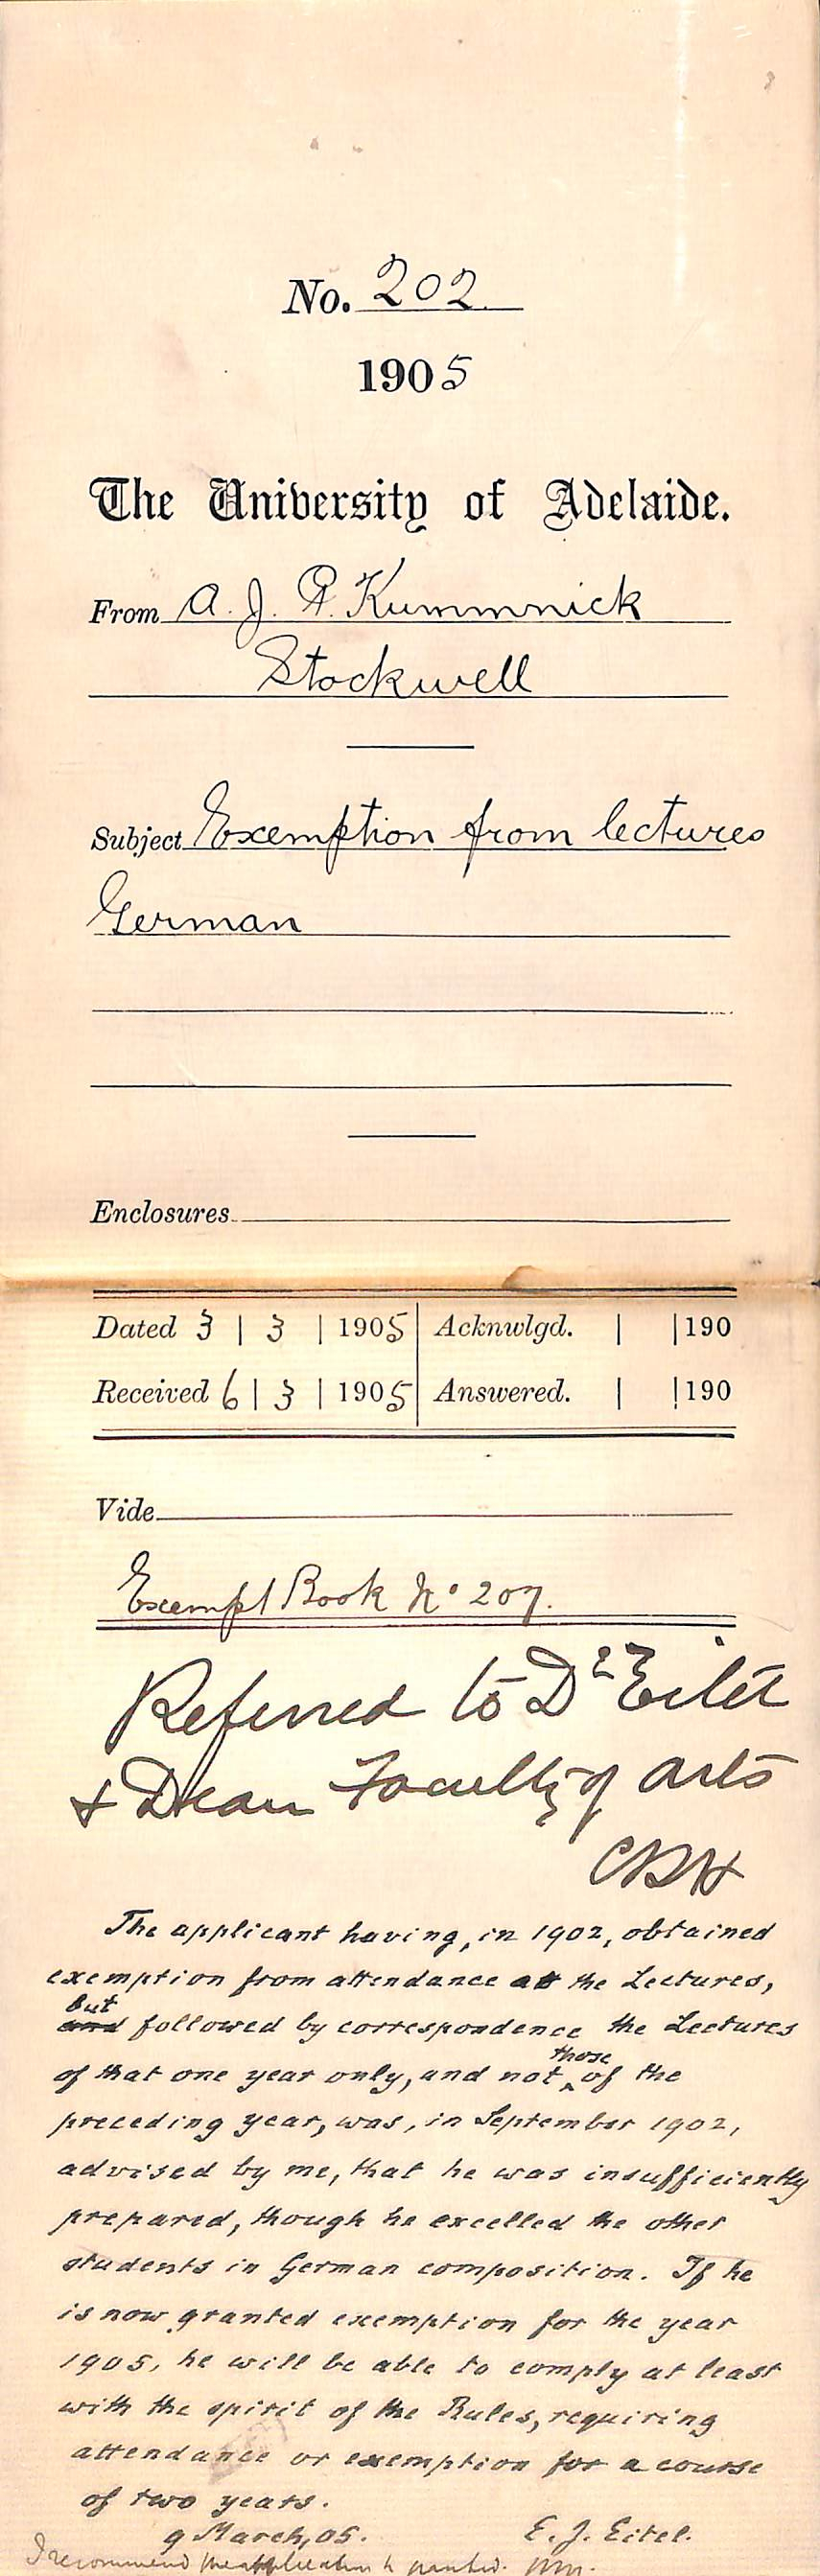 No. 202.
1905
The University of Adelaide.
From A. J. P. Kummnick
Stockwell
Subject Exemption from lectures
German
Enclosures
Dated 3 | 3 | 1905 | Acknwlgd. | | 190
Received 6 | 3 | 1905 | Answered. | | 190
Vide
Exempt Book No 207.
Referred to Dr Eitel
& Dean Faculty of Arts
CRH
The applicant having, in 1902, obtained
exemption from attendance at the Lectures,
but
and followed by correspondence the Lectures
those
of that one year only, and not ‸ of the
preceding year, was, in September 1902,
advised by me, that he was insufficiently
prepared, though he excelled the other
students in German composition. If he
is now granted exemption for the year
1905, he will be able to comply at least
with the spirit of the Rules, requiring
attendance or exemption for a course
of two years.
9 March, 05. E. J. Eitel.
I recommend the application be granted.